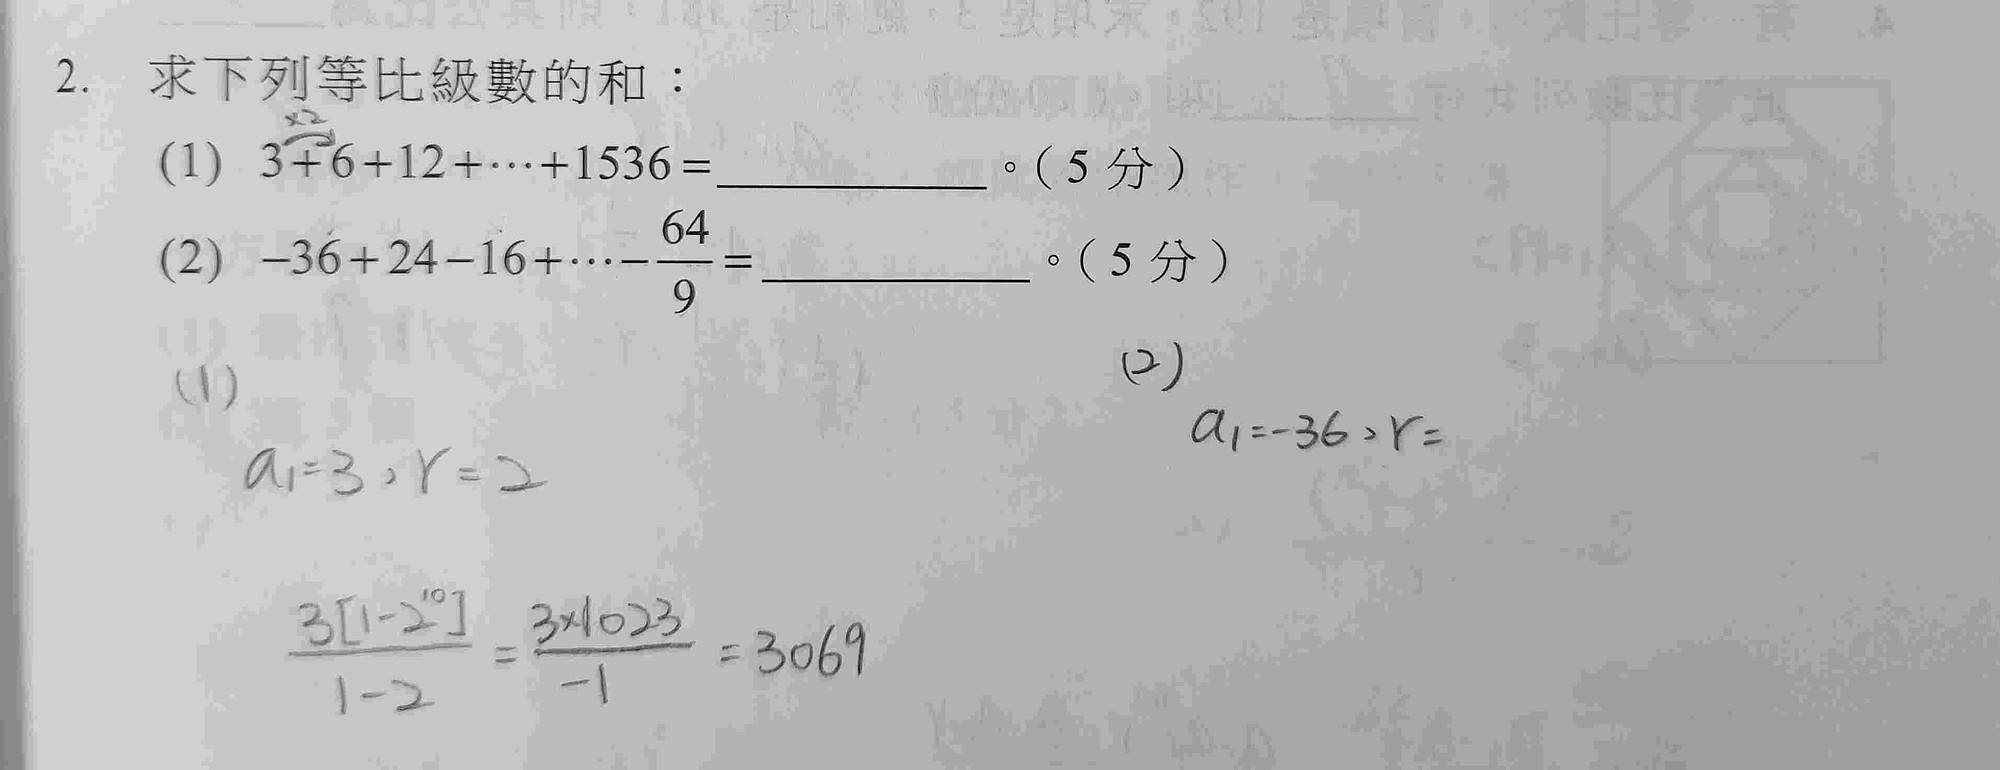 2. 求下列等比級數的和：
×2
(1) 3+6+12+⋯+1536=__________。(5分)
(2) −36+24−16+⋯−64/9=__________。(5分)
(1)
a₁=3，r=2
3[1-2¹⁰]/1-2 = 3×1023/-1 = 3069
(2)
a₁=-36，r=